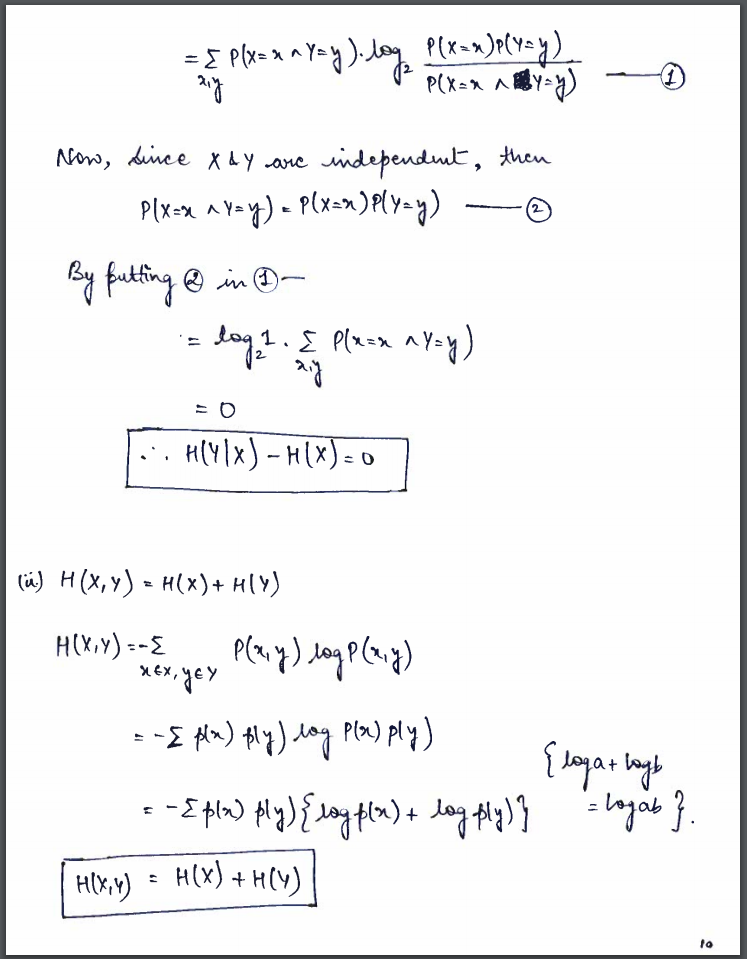 = Σ P(X=x ∧ Y=y). log₂ P(X=x)P(Y=y) / P(X=x ∧ Y=y) —— ①
x,y
Now, since X & Y are independent, then
P(X=x ∧ Y=y) = P(X=x)P(Y=y) —— ②
By putting ② in ① —
= log₂1 . Σ P(x=x ∧ Y=y)
x,y
= 0
∴ H(Y|X) - H(X) = 0
(ii) H(X,Y) = H(X) + H(Y)
H(X,Y) = -Σ P(x,y) log P(x,y)
x∈X, y∈Y
= -Σ p(x) p(y) log P(x) p(y)
{ log a + log b
= -Σ p(x) p(y) { log p(x) + log p(y) }
= log ab }.
H(X,Y) = H(X) + H(Y)
10